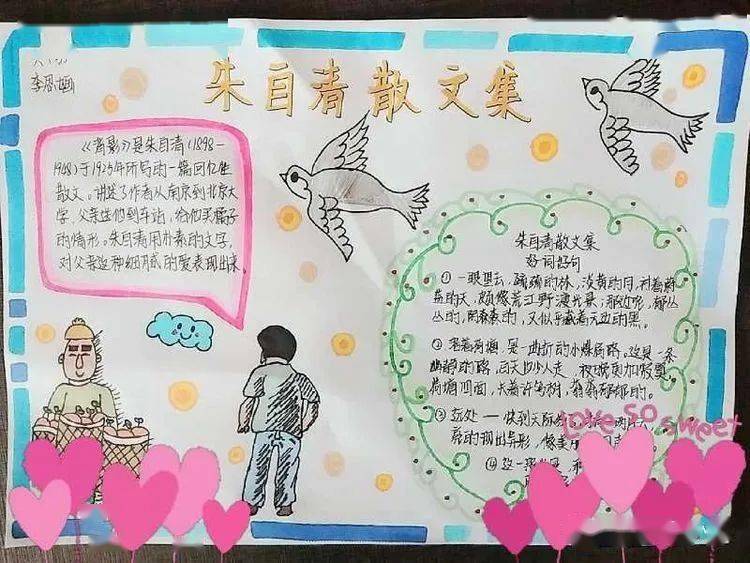 李思
朱自清散文集
《背影》是朱自清(1898-
1948)于1925年所写的一篇回忆性
散文。讲述了作者从南京到北京大
学,父亲送他到车站,给他买橘子
的情形。朱自清用朴素的文字,
对父亲这种细腻的爱表现出来
朱自清散文集
好词好句
① 一眼望去,疏疏的林,淡黄的月,衬着蔚
蓝的天,颇像荒江野渡光景;那边呢,郁丛
丛的,阴森森的,又似乎藏着无边的黑。
② 沿着荷塘,是一曲折的小煤屑路。这是一条
幽静的路,白天也少人走,夜晚更加寂寞
荷塘四面,长着许多树,蓊蓊郁郁的。
③ 远处——快到天际
的现出异形,像美
④ 这一
love so sweet